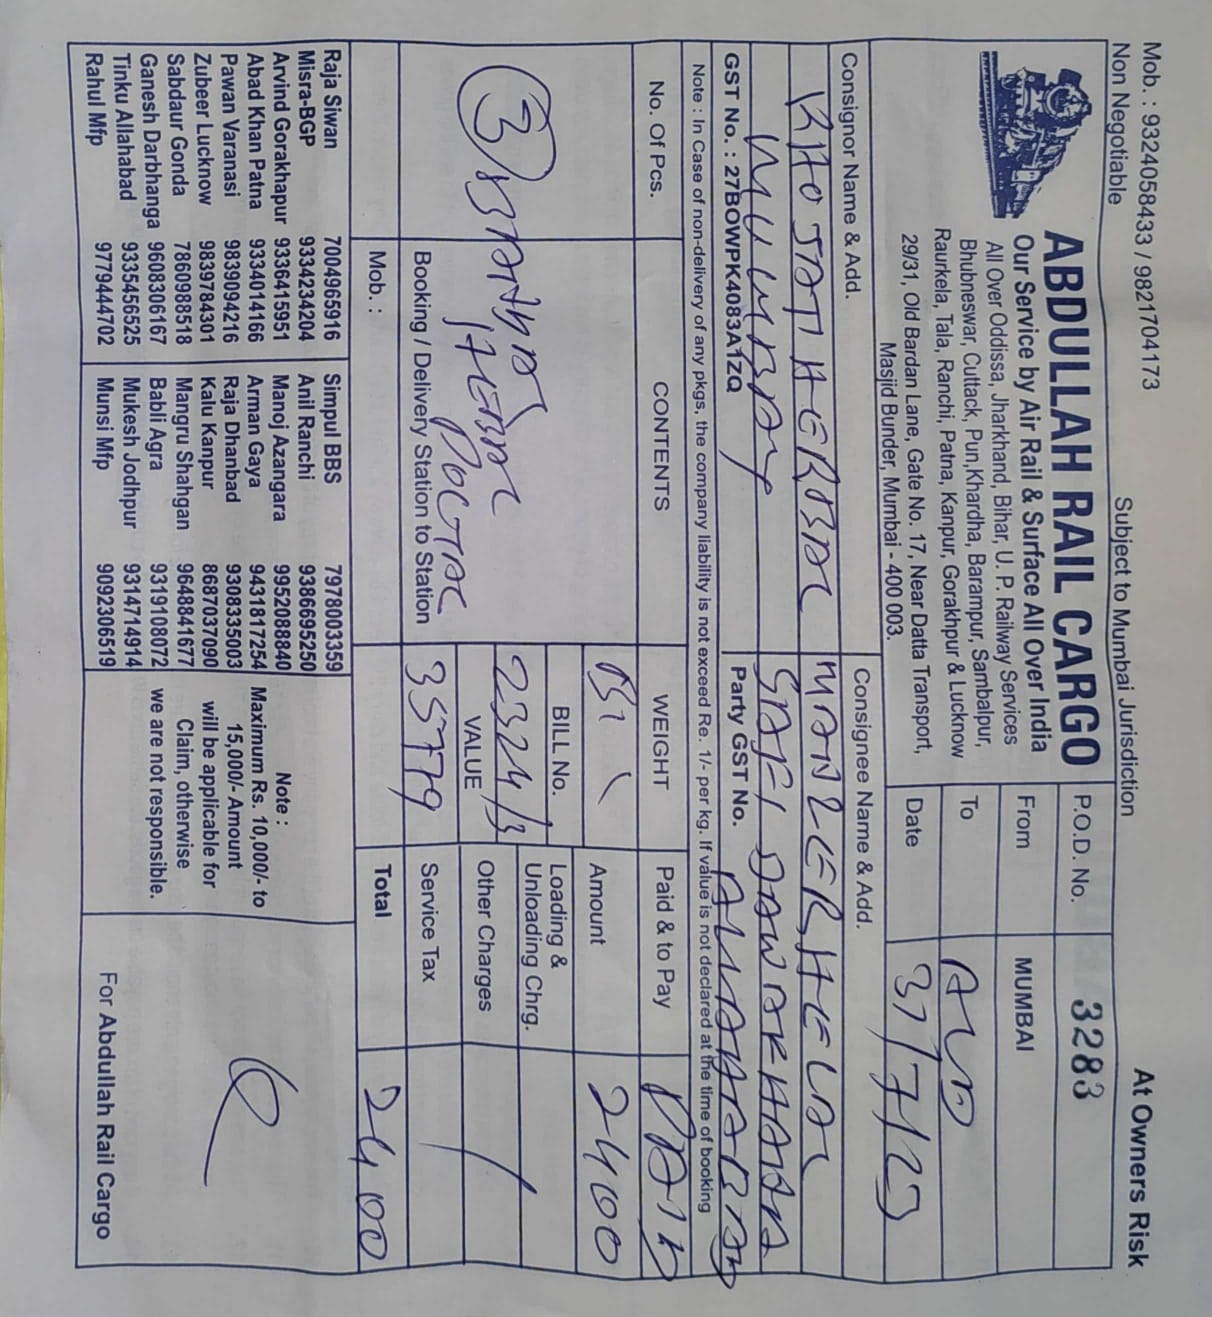 Mob. : 9324058433 / 9821704173
Non Negotiable
Subject to Mumbai Jurisdiction
At Owners Risk
ABDULLAH RAIL CARGO
Our Service by Air Rail & Surface All Over India
All Over Oddissa, Jharkhand, Bihar, U. P. Railway Services
Bhubneswar, Cuttack, Puri,Khardha, Barampur, Sambalpur,
Raurkela, Tala, Ranchi, Patna, Kanpur, Gorakhpur & Lucknow
29/31, Old Bardan Lane, Gate No. 17, Near Datta Transport,
Masjid Bunder, Mumbai - 400 003.
P.O.D. No. 3283
From MUMBAI
To ALD
Date
Consignor Name & Add.
KHOJATI HERBAL
MUMBAY
GST No. : 27BOWPK4083A1ZQ
Consignee Name & Add.
SAFI DAWAKHANA
ALLAHABAD
Party GST No.
Note : In Case of non-delivery of any pkgs, the company liability is not exceed Re. 1/- per kg. If value is not declared at the time of booking
No. Of Pcs. CONTENTS WEIGHT Paid & to Pay PAID
3 HERBAL
BILL No. 2324/3
VALUE 35779
Amount 2400
Loading &
Unloading Chrg.
Other Charges
Service Tax
Booking / Delivery Station to Station
Mob. :
Total 2400
Raja Siwan 7004965916 Simpul BBS 7978003359
Misra-BGP 9334234204 Anil Ranchi 9386695250
Arvind Gorakhapur 9336415951 Manoj Azangara 9952088840
Abad Khan Patna 9334014166 Arman Gaya 9431817254
Pawan Varanasi 9839094216 Raja Dhanbad 9308335003
Zubeer Lucknow 9839784301 Kalu Kanpur 8687037090
Sabdaur Gonda 7860988518 Mangru Shahgan 9648841677
Ganesh Darbhanga 9608306167 Babli Agra 9319108072
Tinku Allahabad 9335456525 Mukesh Jodhpur 9314714914
Rahul Mfp 9779444702 Munsi Mfp 9092306519
Note :
Maximum Rs. 10,000/- to
15,000/- Amount
will be applicable for
Claim, otherwise
we are not responsible.
For Abdullah Rail Cargo